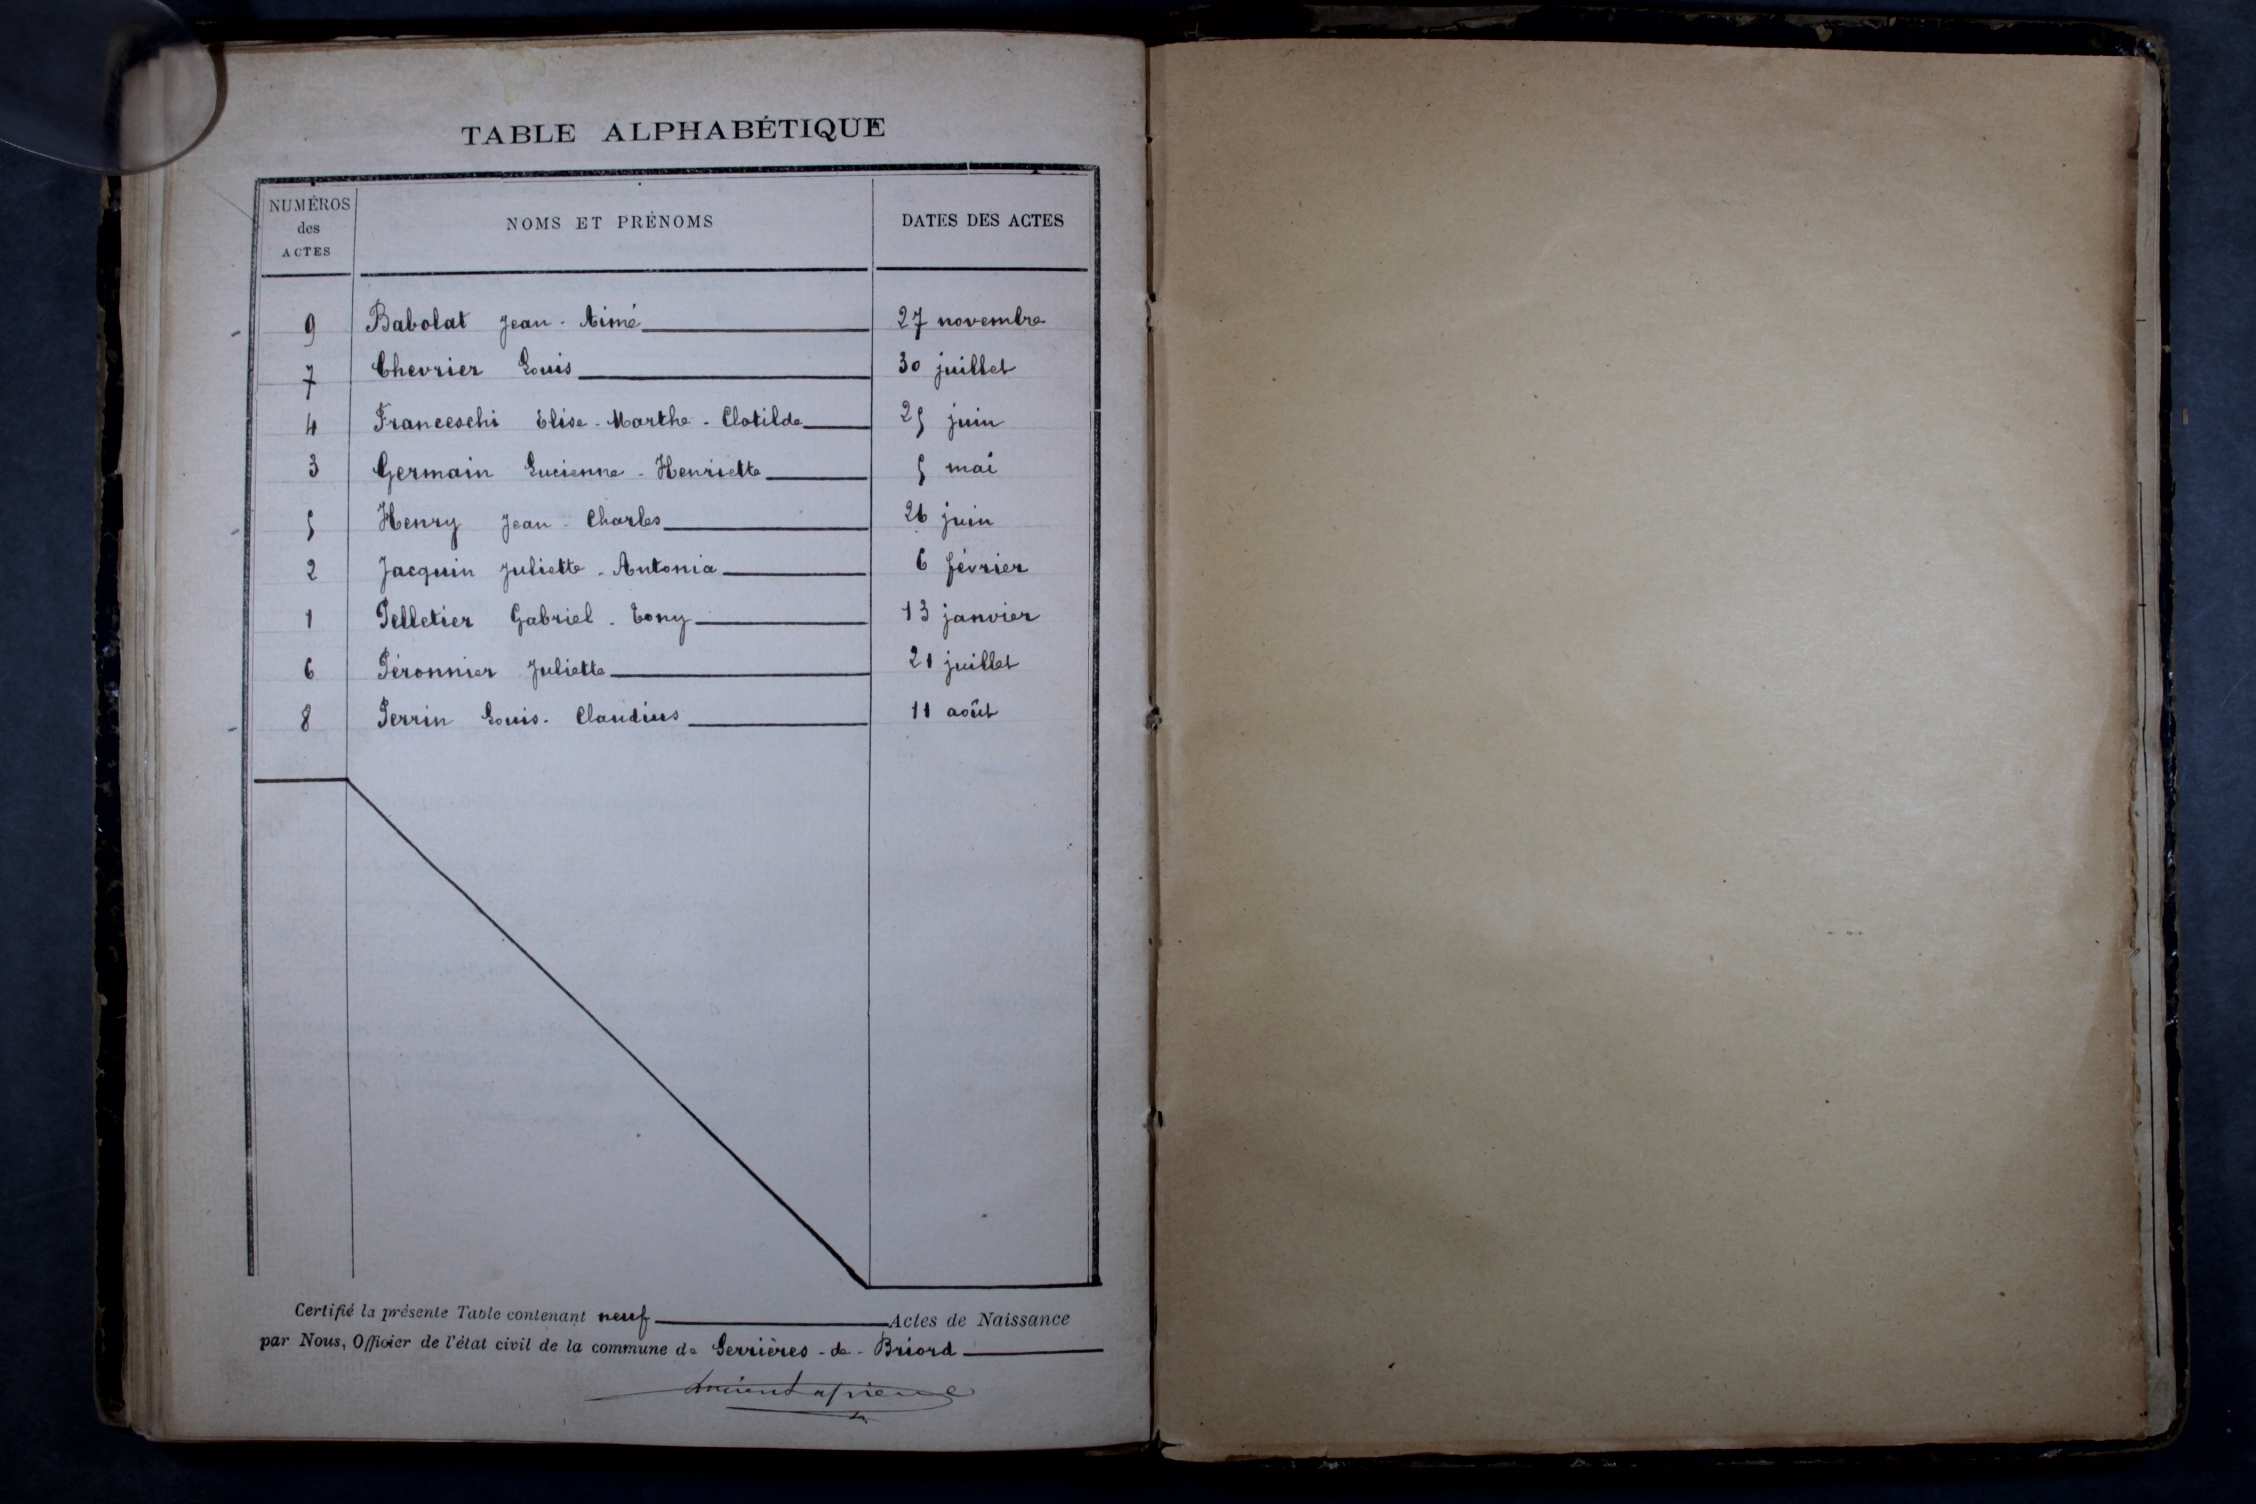 TABLE ALPHABÉTIQUE
NUMÉROS
des
ACTES
NOMS ET PRÉNOMS
DATES DES ACTES
9 Babolat Jean - Aimé 27 novembre
7 Chevrier Louis 30 juillet
4 Franceschi Elise - Marthe - Clotilde 25 juin
3 Germain Lucienne - Henriette 5 mai
5 Henry Jean - Charles 26 juin
2 Jacquin Juliette - Antonia 6 février
1 Pelletier Gabriel - Tony 13 janvier
6 Péronnier Juliette 21 juillet
8 Perrin Louis - Claudius 11 août
Certifié la présente Table contenant neuf Actes de Naissance
par Nous, Officier de l'état civil de la commune de Serrières - de - Briord